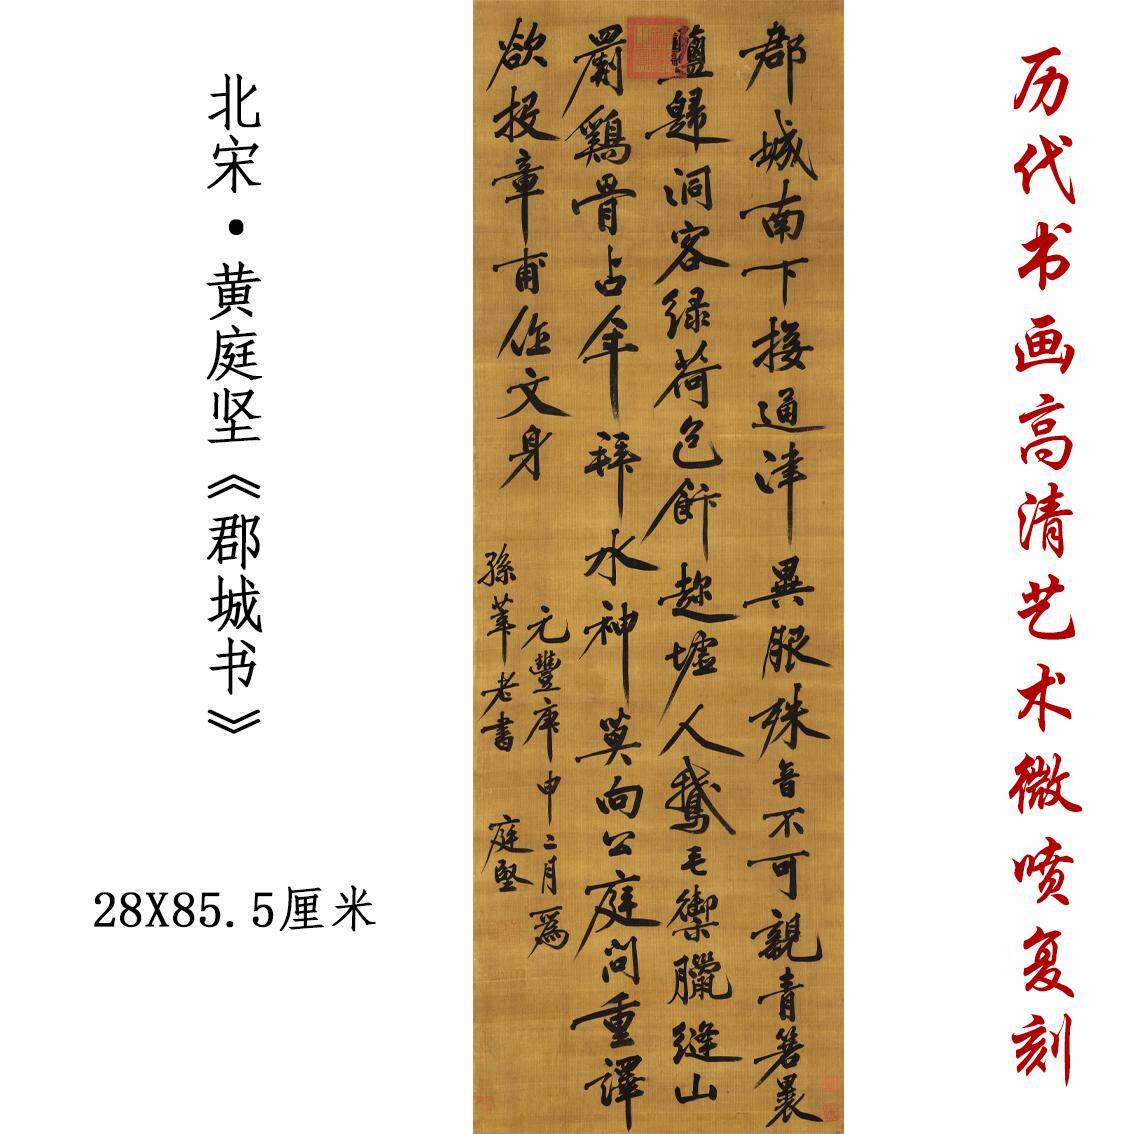 历代书画高清艺术微喷复刻
郡城南下接通津異服殊音不可親青箬裹
鹽歸洞客绿荷包飰趂墟人鵝毛禦臘縫山
罽鷄骨占年拜水神莫向公庭問重譯
欲投章甫作文身
元豐庚申二月為
孫莘老書 庭堅
北宋·黄庭坚《郡城书》
28X85.5厘米